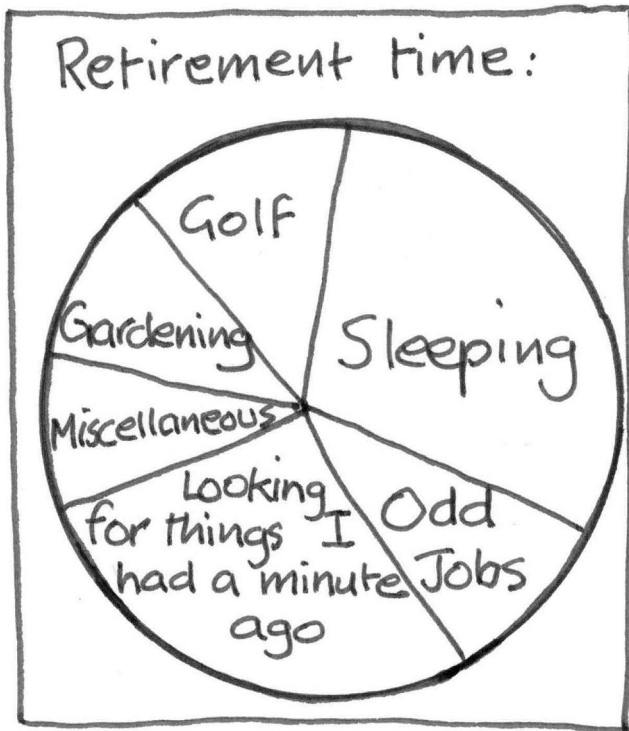 Retirement time:
Golf
Sleeping
Gardening
Miscellaneous
Looking
for things I
had a minute
ago
Odd
Jobs